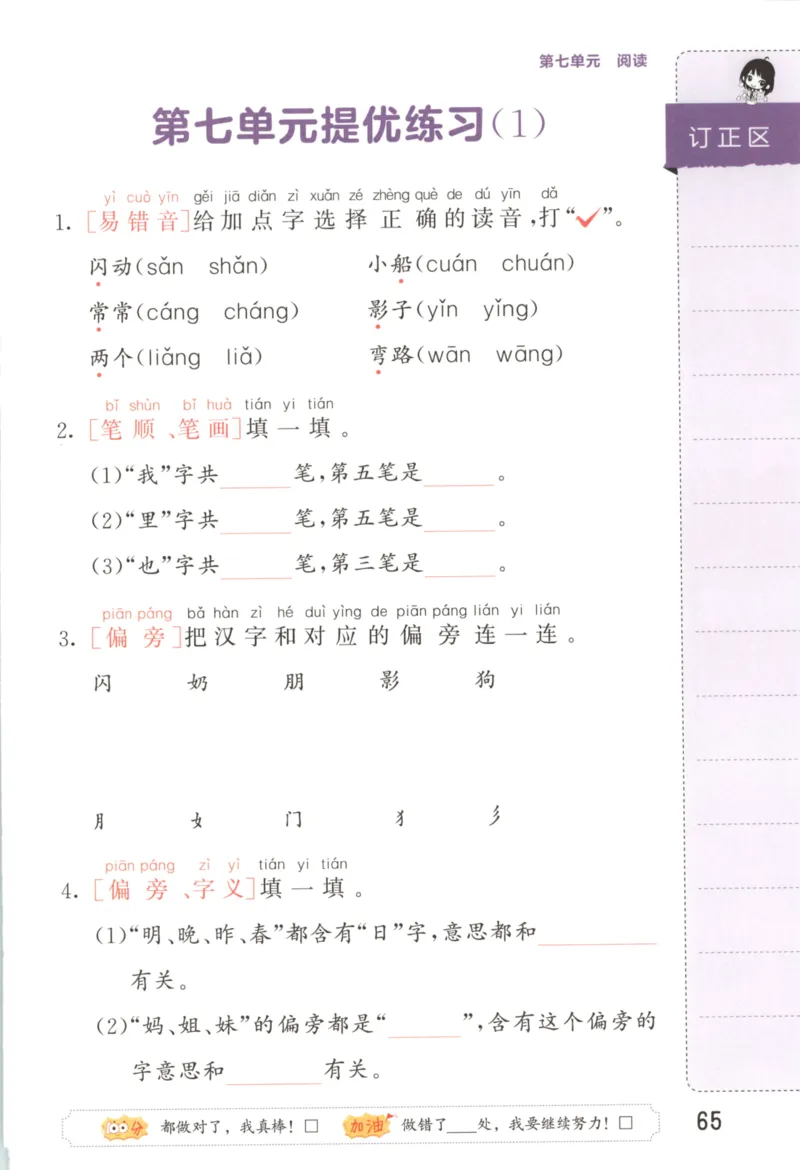 第七单元 阅读
第七单元提优练习(1)
订正区
yì cuò yīn gěi jiā diǎn zì xuǎn zé zhèng què de dú yīn dǎ
1. [易错音]给加点字选择正确的读音,打“✓”。
闪动(sǎn shǎn) 小船(cuán chuán)
常常(cáng cháng) 影子(yǐn yǐng)
两个(liǎng liǎ) 弯路(wān wāng)
bǐ shùn bǐ huà tián yi tián
2. [笔顺、笔画]填一填。
(1)“我”字共____笔,第五笔是____。
(2)“里”字共____笔,第五笔是____。
(3)“也”字共____笔,第三笔是____。
piān páng bǎ hàn zì hé duì yìng de piān páng lián yi lián
3. [偏旁]把汉字和对应的偏旁连一连。
闪 奶 朋 影 狗
月 女 门 犭 彡
piān páng zì yì tián yi tián
4. [偏旁、字义]填一填。
(1)“明、晚、昨、春”都含有“日”字,意思都和____
有关。
(2)“妈、姐、妹”的偏旁都是“____”,含有这个偏旁的
字意思和____有关。
100分 都做对了,我真棒!□ 加油 做错了___处,我要继续努力!□
65